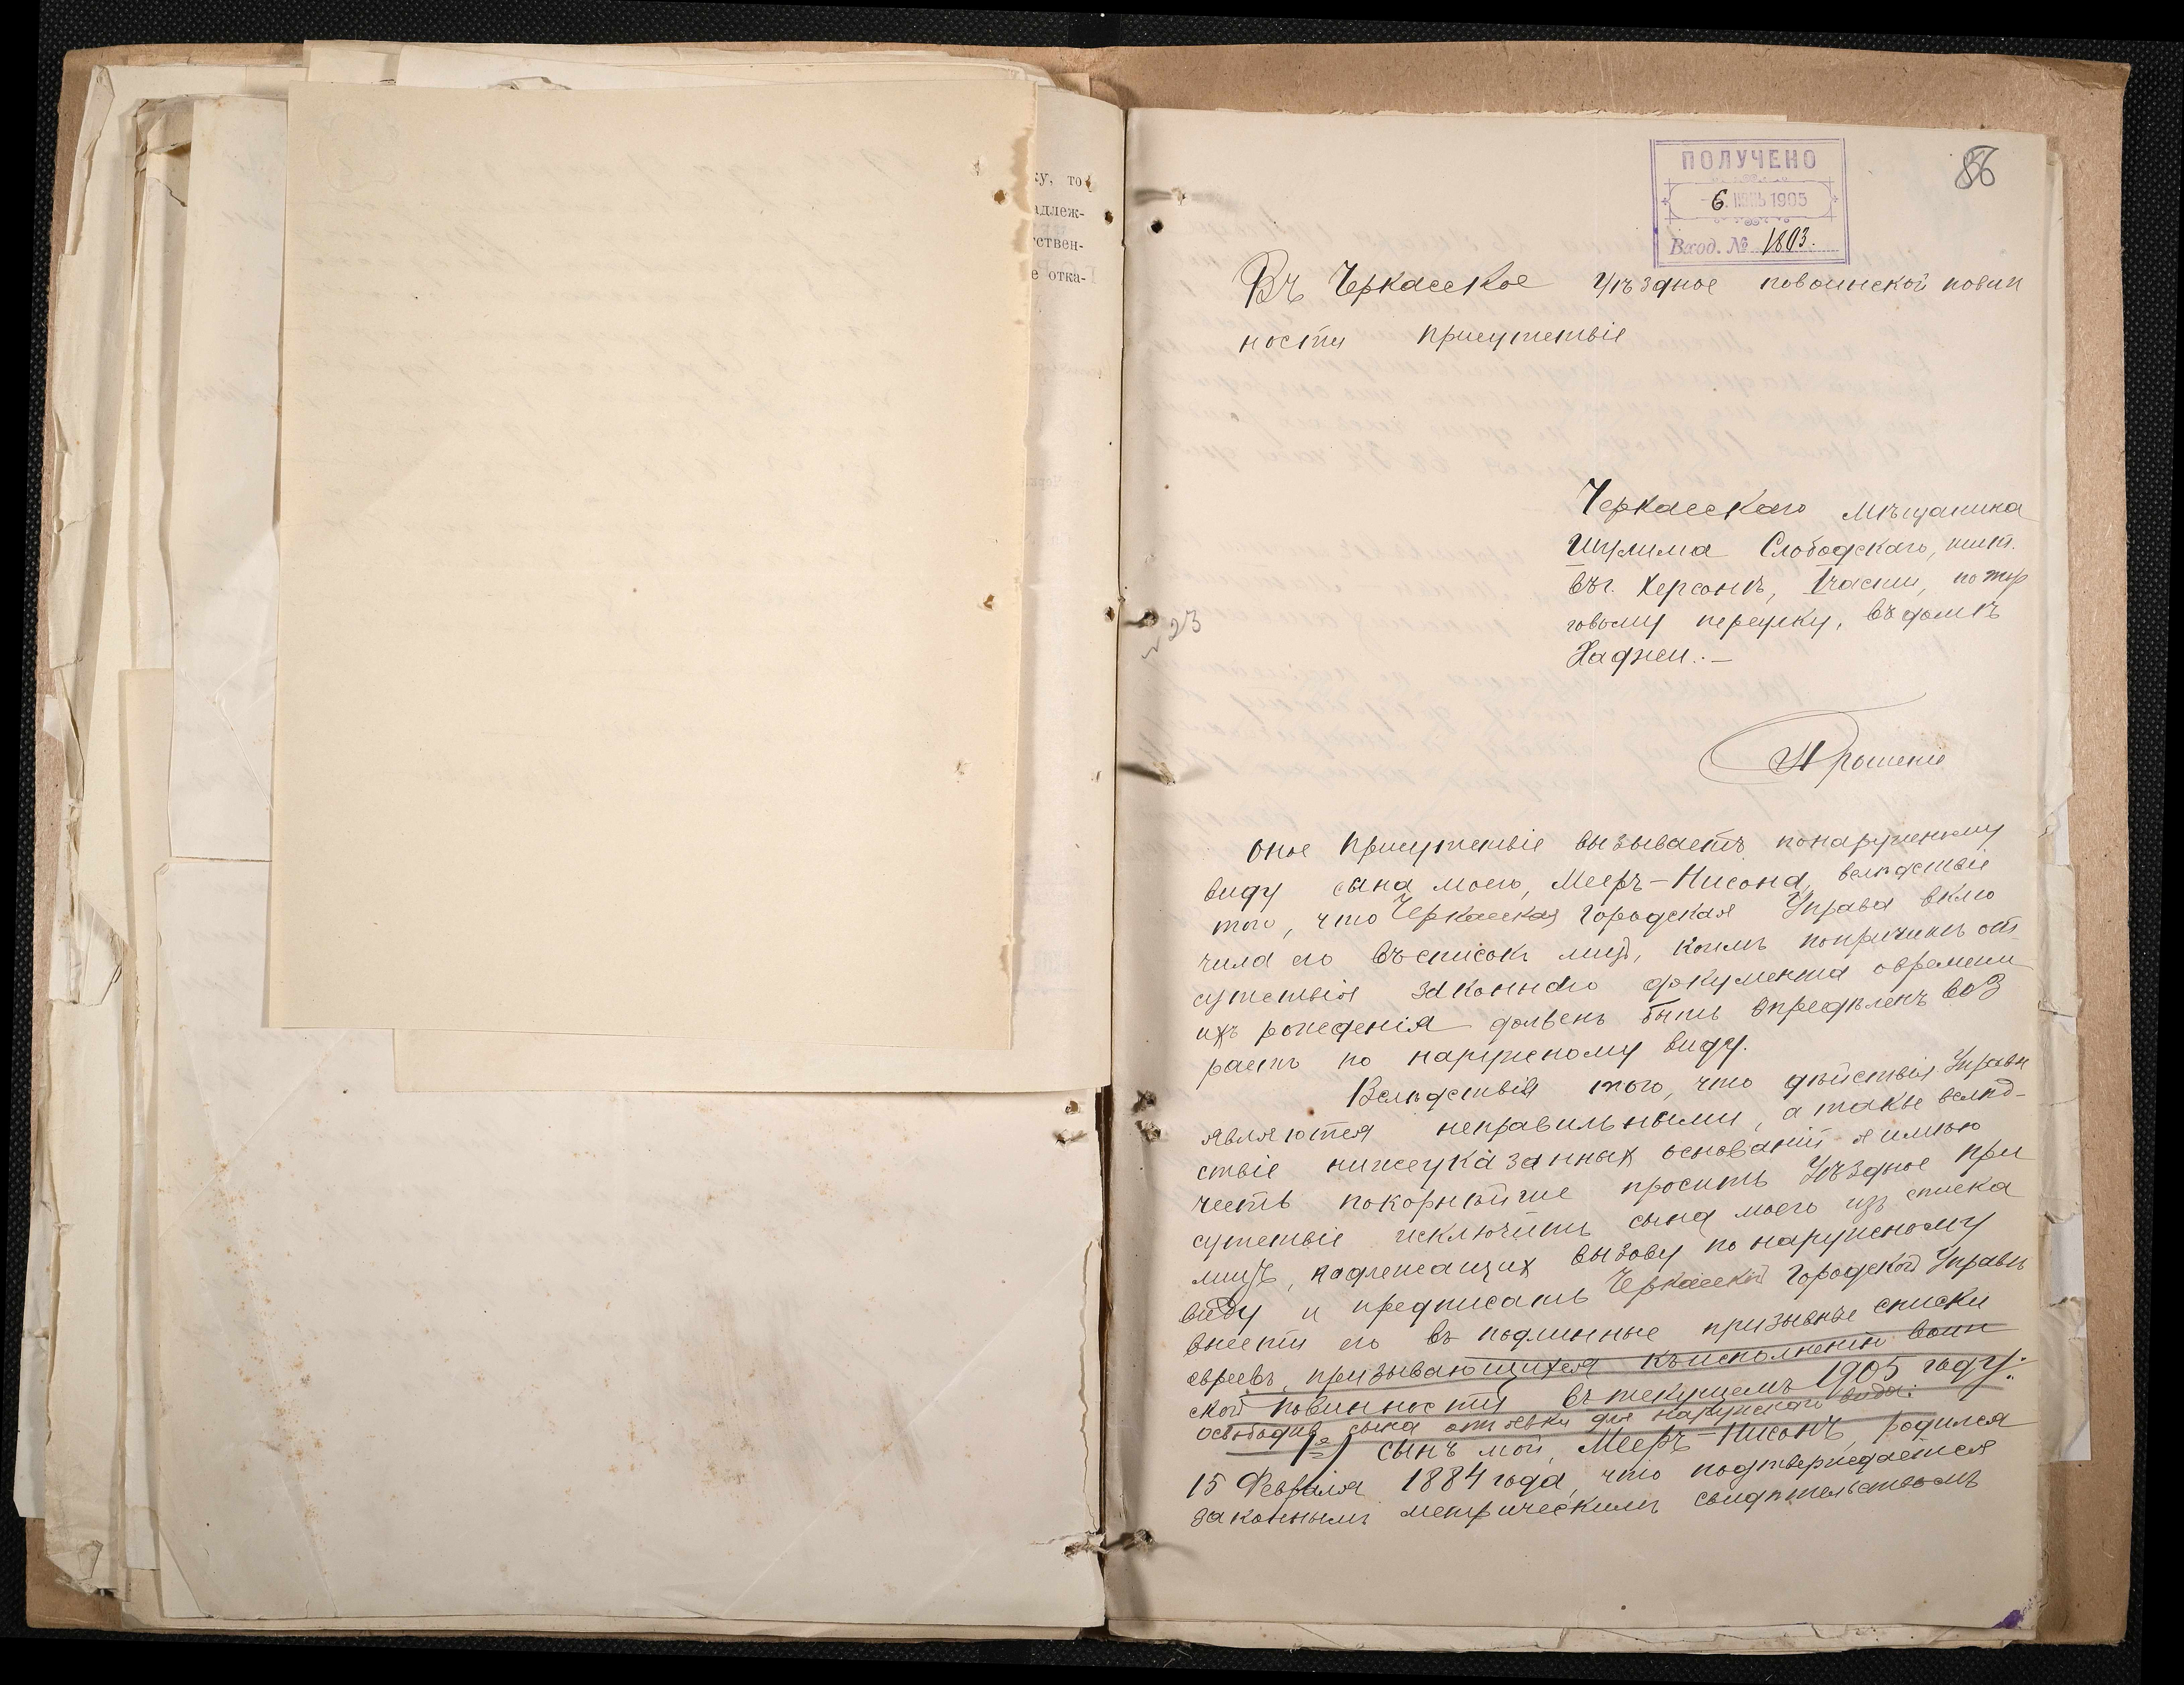 ку, то
адлеж-
тствен-
е отка-
ПОЛУЧЕНО
6. ІЮНЬ 1905
Вход. № 1803.
86
Въ Черкасское Уѣздное повоинской повин
ности присутствіе
Черкасскаго мѣщанина
Шулима Слободскаго, жит.
въ г. Херсонѣ, I части, по тор
говому переулку, въ домѣ
23
Прошеніе
Оное присутствіе вызываетъ понаружному
виду сына моего, Мееръ-Нисона, вслѣдствіе
того, что Черкасская Городская Управа вклю
чила его въ списокъ лицъ, коимъ попричинѣ от
сутствія законнаго документа овремени
ихъ рожденія долженъ быть опредѣленъ воз
растъ по наружному виду.
Вслѣдствія того, что дѣйствія Управы
являются неправильными, а также вслѣд-
ствіе нижеуказанных основаній я имѣю
честь покорнѣйше просить Уѣздное При
сутствіе исключить сына моего изъ списка
лицъ, подлежащих вызову по наружному
виду и предписать Черкасской Городской Управѣ
внести его въ подлинные призывные списки
евреевъ, призывающихся къ исполненію воин
ской повинности въ текущемъ 1905 году.
освободив сына от явки для наружнаго вида:
1е) сынъ мой, Мееръ-Нисонъ, родился
15 Февраля 1884 года, что подтверждается
законнымъ метрическимъ свидѣтельствомъ